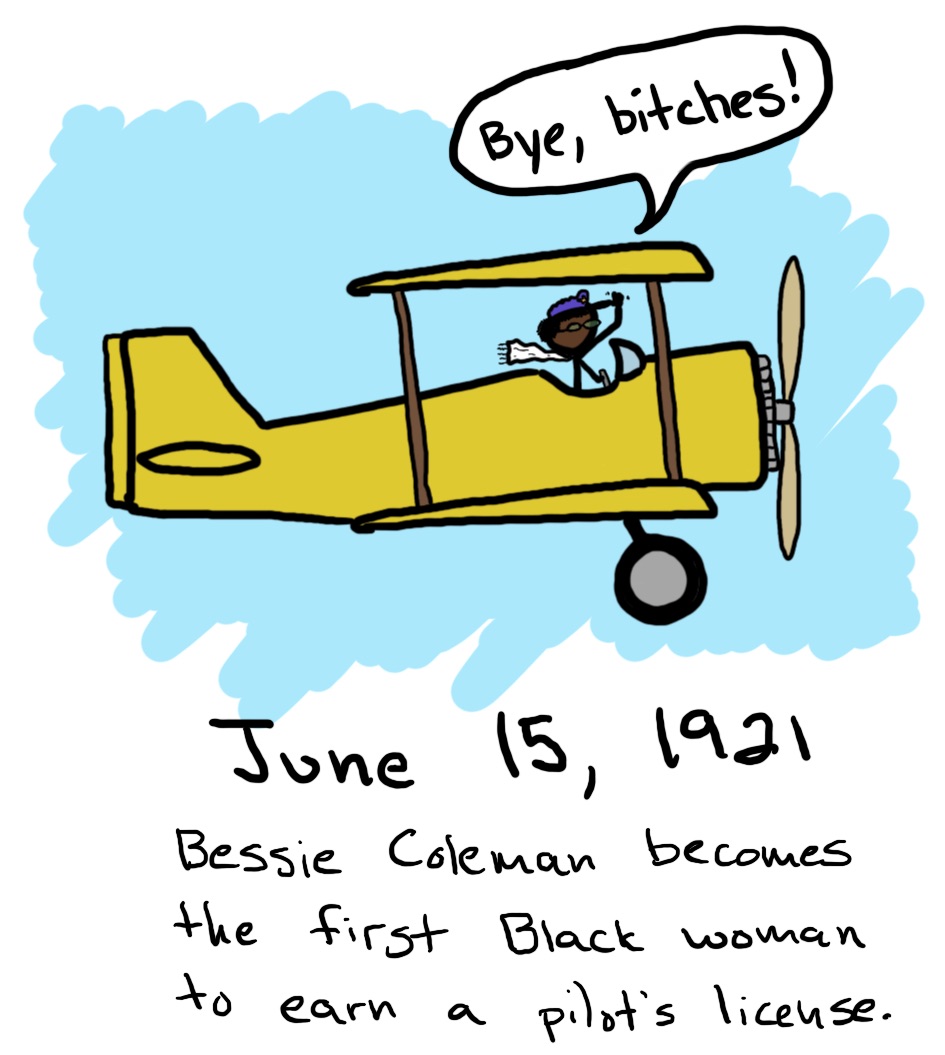 Bye, bitches!
June 15, 1921
Bessie Coleman becomes
the first Black woman
to earn a pilot's license.